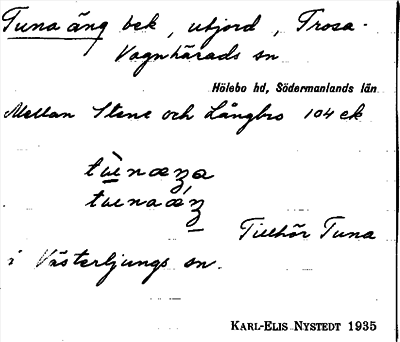 Tuna äng bek, utjord, Trosa-
Vagnhärads sn
Hölebo hd, Södermanlands län
Mellan Stene och Långbro 104 ek
Tillhör Tuna
i Västerljungs sn.
KARL-ELIS NYSTEDT 1935